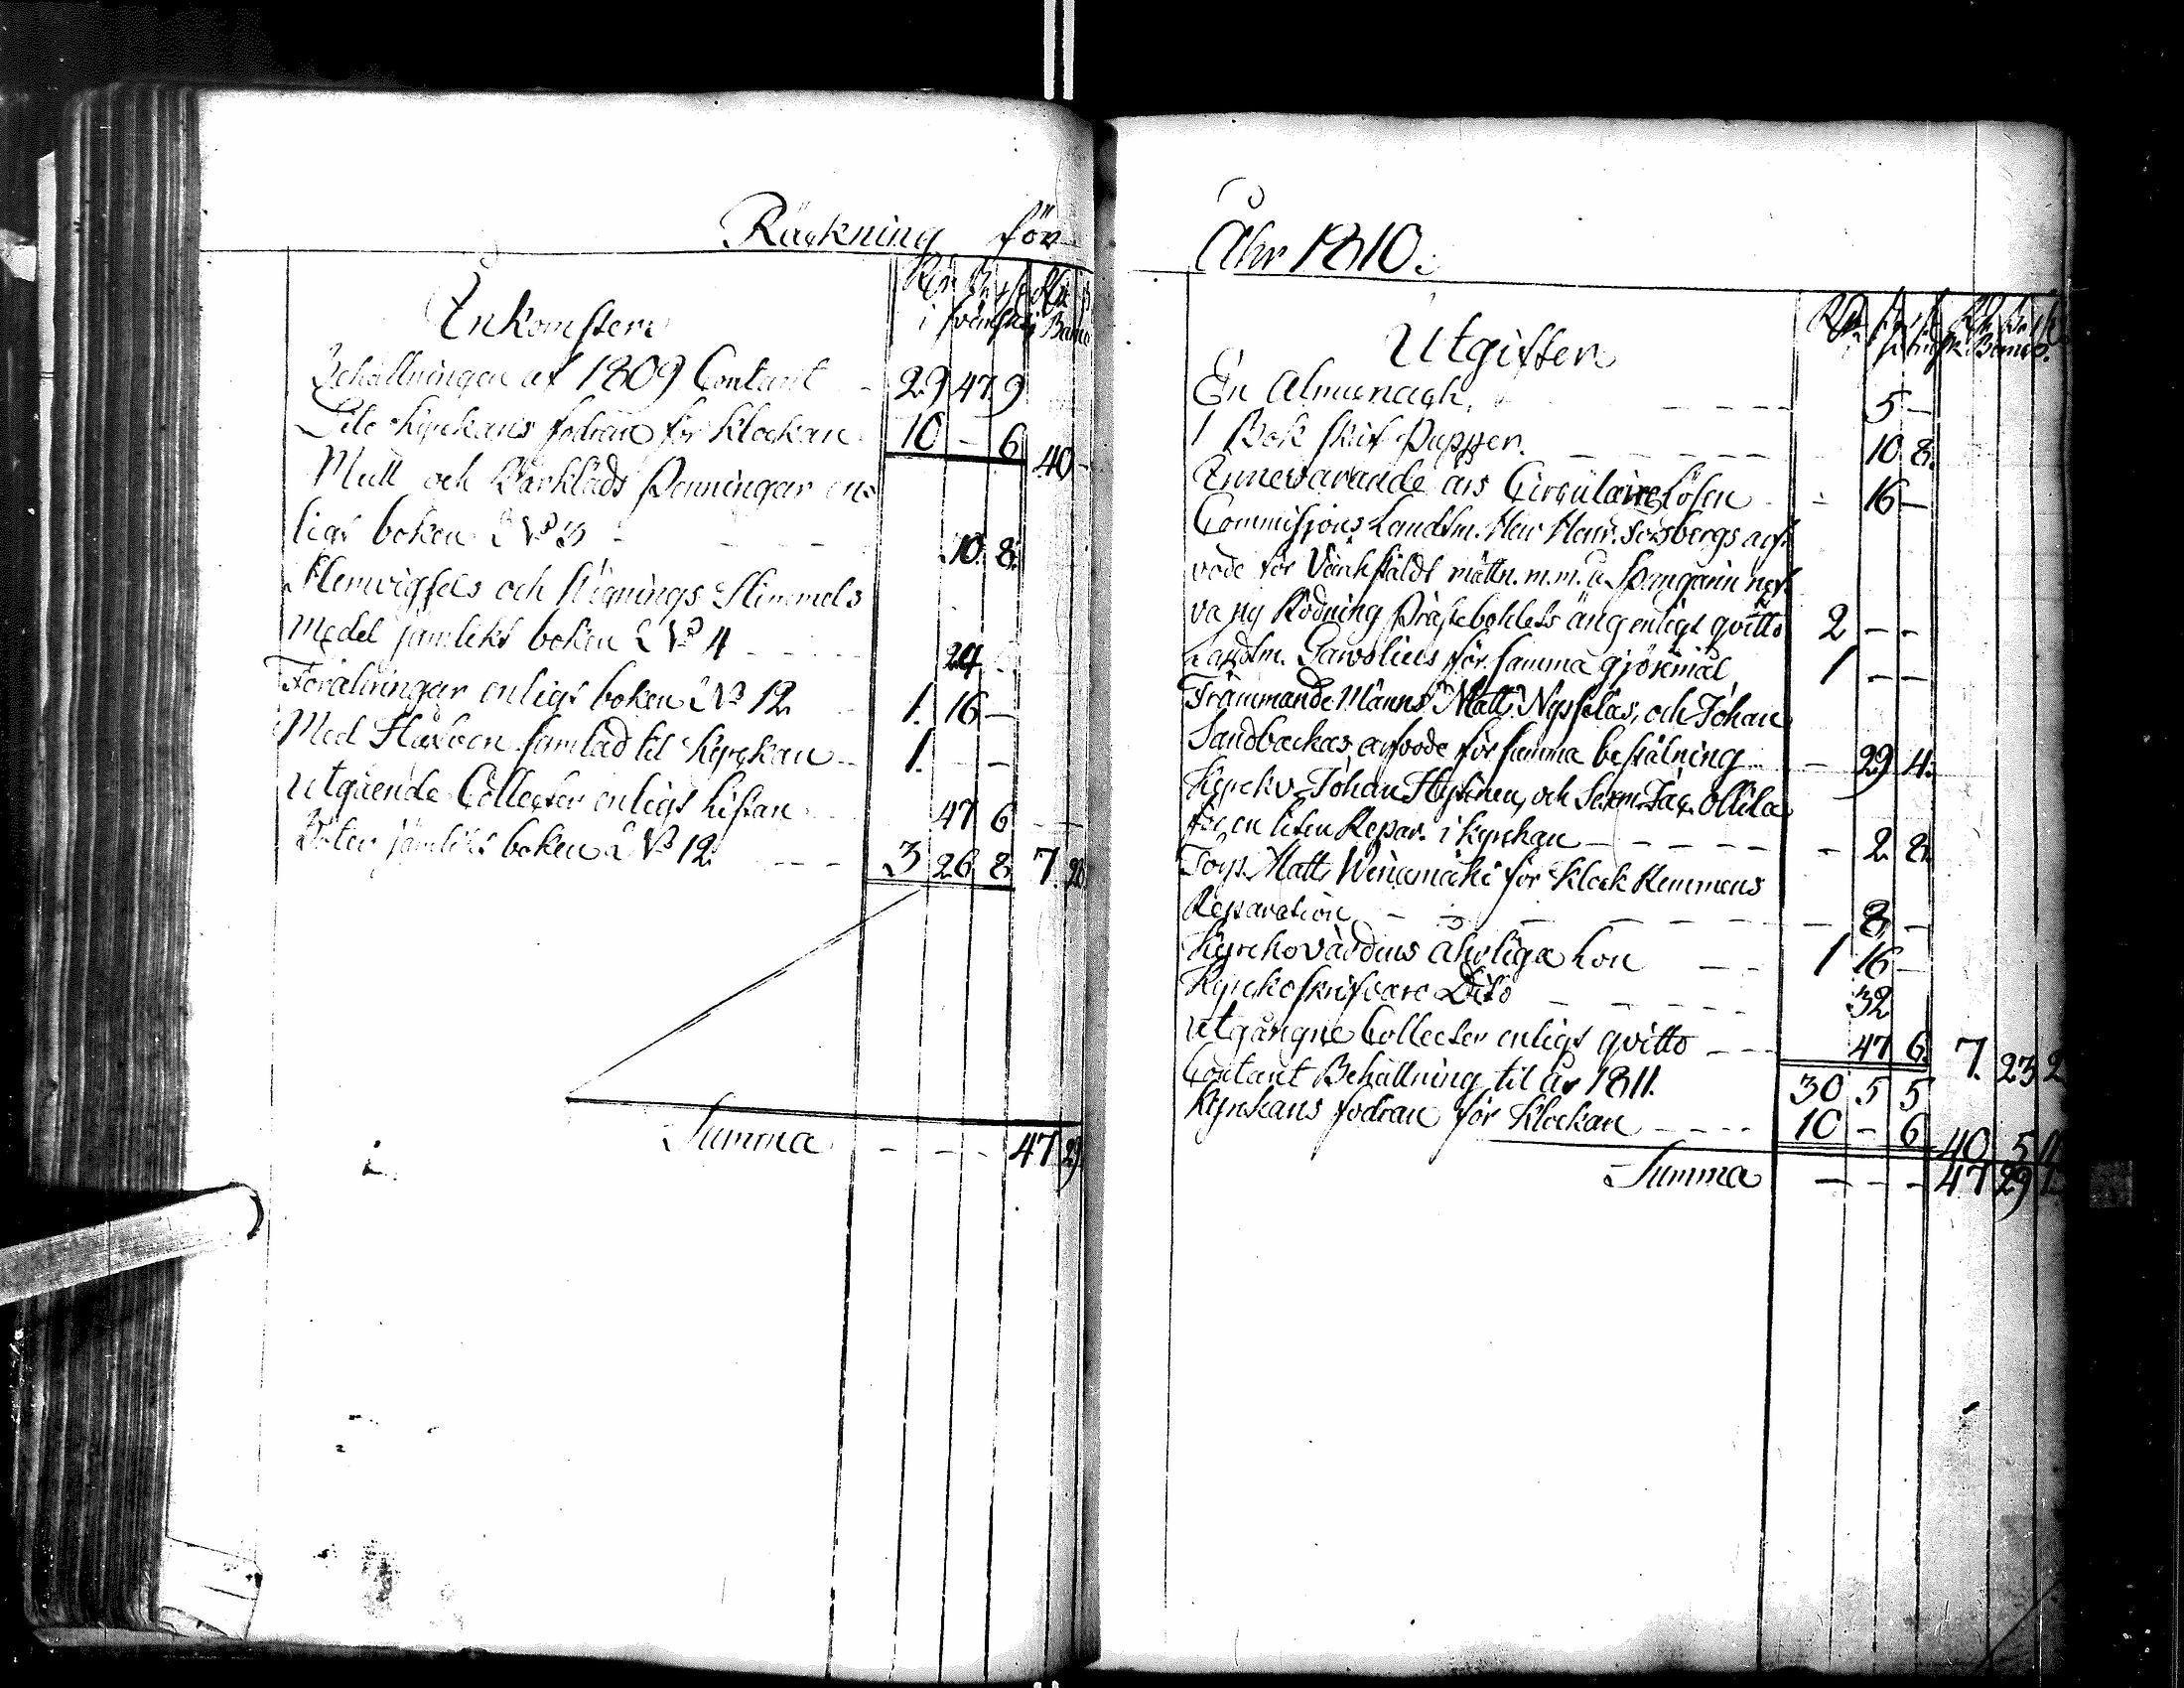 Räckning för
Inkomsten
Rdr sk rst Rdr
i svänsk Banco
Behållningen af 1809 Contant 29 47 9
Dito Kyrckans fodran för Klockan 10 - 6 40 -
Mull och Bårkläds Penningar en-
ligt boken N° 3 10. 8.
Hemvigsels och Stignings
Medel jämlikt boken N° 4 24
Föräringar enligt boken N° 12 1. 16 -
Med Håfven samlad til Kyrckan 1. - -
Utgående Collecter enligt Listan 47 6
Böter jämlikt boken N° 12. 3 26 8. 7.
Summa - - - - 47 29
Åhr 1810.
Utgiften
Banco.
En Almanach. 5 -
1 Bok skrif Papper. 10 8.
Innevarande års Circulaire lösen 16 -
Commissions Landtm. Herr Henr. arf-
vode för mättn. m.m.
va ny Rödning Prästebohlets äng enligt qvitto 2 - -
Landtm. för samma gjöremål 1 - -
Främmande Männs Matts och Johan
Sandbackas arfvode för samma beställning - 29 4.
Kyrckv. Johan och Sexm. Jac. Ollila
för en liten Repar. i kyrckan - 2. 8.
Torp. Matts för Klock Remmens
Reparation - 8 -
Kyrckovärdens åhrliga Lön 1 16 -
Kyrckoskrifvare Dito 32
Utgångne Collecter enligt qvitto 47 6. 7. 23 2
Contant Behållning til år 1811. 30 5 5
Kyrckans fodran för Klockan 10 - 6 40 5 11
Summa - - - 47 29 1